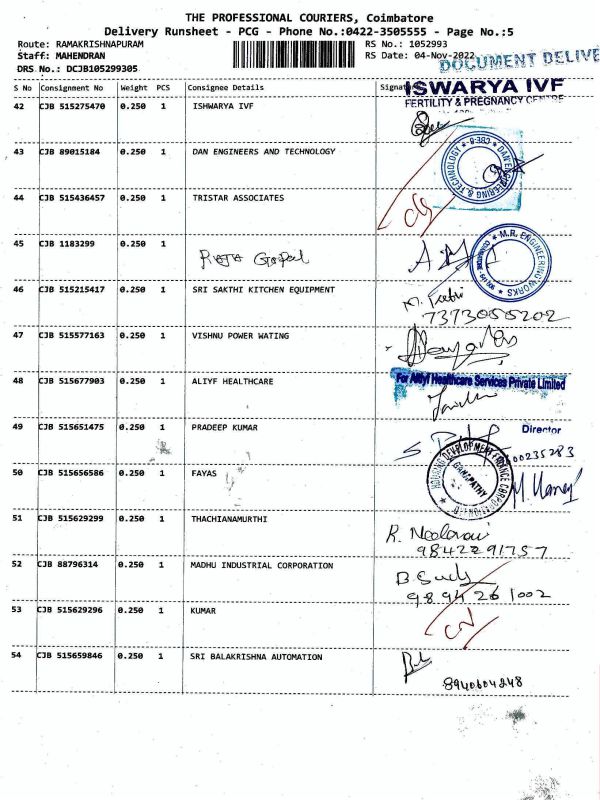 THE PROFESSIONAL COURIERS, Coimbatore
Delivery Runsheet - PCG - Phone No.:0422-3505555 - Page No.:5
Route: RAMAKRISHNAPURAM
RS No.: 1052993
Staff: MAHENDRAN
RS Date: 04-Nov-2022
DRS No.: DCJB105299305
DOCUMENT DELIVE
S No Consignment No Weight PCS Consignee Details Signat
ISWARYA IVF
FERTILITY & PREGNANCY CENTRE
42 CJB 515275470 0.250 1 ISHWARYA IVF
43 CJB 89015184 0.250 1 DAN ENGINEERS AND TECHNOLOGY
DAN ENGINEERING & TECHNOLOGY * CBE-6 *
44 CJB 515436457 0.250 1 TRISTAR ASSOCIATES
45 CJB 1183299 0.250 1
Raja Gopal
M.R. ENGINEERING WORKS
46 CJB 515215417 0.250 1 SRI SAKTHI KITCHEN EQUIPMENT
7373055202
47 CJB 515577163 0.250 1 VISHNU POWER WATING
48 CJB 515677903 0.250 1 ALIYF HEALTHCARE
For Aliyf Healthcare Services Private Limited
49 CJB 515651475 0.250 1 PRADEEP KUMAR
Director
600235283
50 CJB 515656586 0.250 1 FAYAS
HOUSING DEVELOPMENT FINANCE CORPORATION
GANAPATHY
51 CJB 515629299 0.250 1 THACHIANAMURTHI
9842291757
52 CJB 88796314 0.250 1 MADHU INDUSTRIAL CORPORATION
9894261002
53 CJB 515629296 0.250 1 KUMAR
54 CJB 515659846 0.250 1 SRI BALAKRISHNA AUTOMATION
8940604248